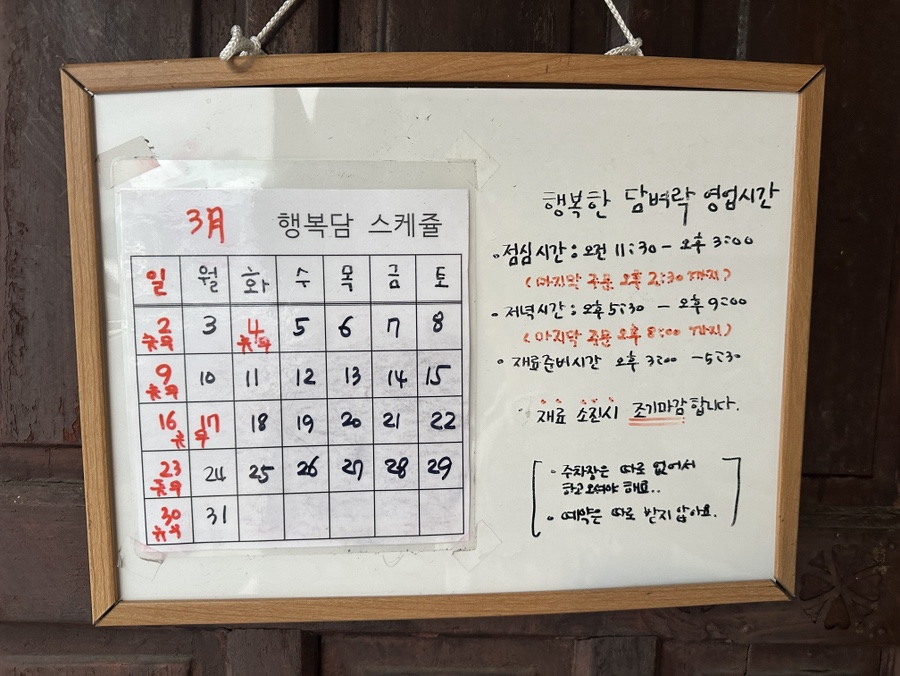 3月 행복담 스케쥴
일 월 화 수 목 금 토
2 3 4 5 6 7 8
휴무 휴무
9 10 11 12 13 14 15
휴무
16 17 18 19 20 21 22
휴 무
23 24 25 26 27 28 29
휴무
30 31
휴무
행복한 담벼락 영업시간
• 점심시간 : 오전 11:30 - 오후 3:00
(마지막 주문 오후 2:30 까지)
• 저녁시간 : 오후 5:30 - 오후 9:00
(마지막 주문 오후 8:00 까지)
• 재료준비시간 오후 3:00 - 5:30
• 재료 소진시 조기마감합니다.
• 주차장은 따로 없어서
하고오셔야 해요..
• 예약은 따로 받지 않아요.